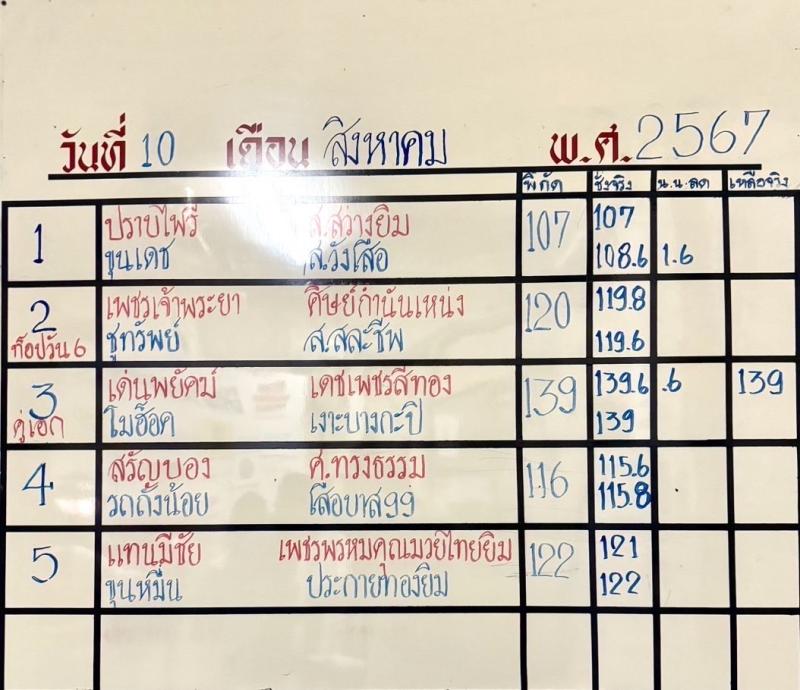 วันที่ 10 เดือน สิงหาคม พ.ศ. 2567
พิกัด ชั่งจริง น.น.ลด เหลือจริง
1 ปราบไพรี ส.สว่างยิม 107 107
ขุนเดช ส.วังเสือ 108.6 1.6
2 เพชรเจ้าพระยา ศิษย์กำนันเหน่ง 120 119.8
ท็อปวัน 6 ชูทรัพย์ ส.สละชีพ 119.6
3 เด่นพยัคฆ์ เดชเพชรสีทอง 139 139.6 .6 139
คู่เอก โมฮ็อค เงาะบางกะปิ 139
4 สรัญบอง ศ.ทรงธรรม 116 115.6
รถถังน้อย เสือบาส99 115.8
5 แทนมีชัย เพชรพรหมคุณมวยไทยยิม 122 121
ขุนหมื่น ประกายทองยิม 122